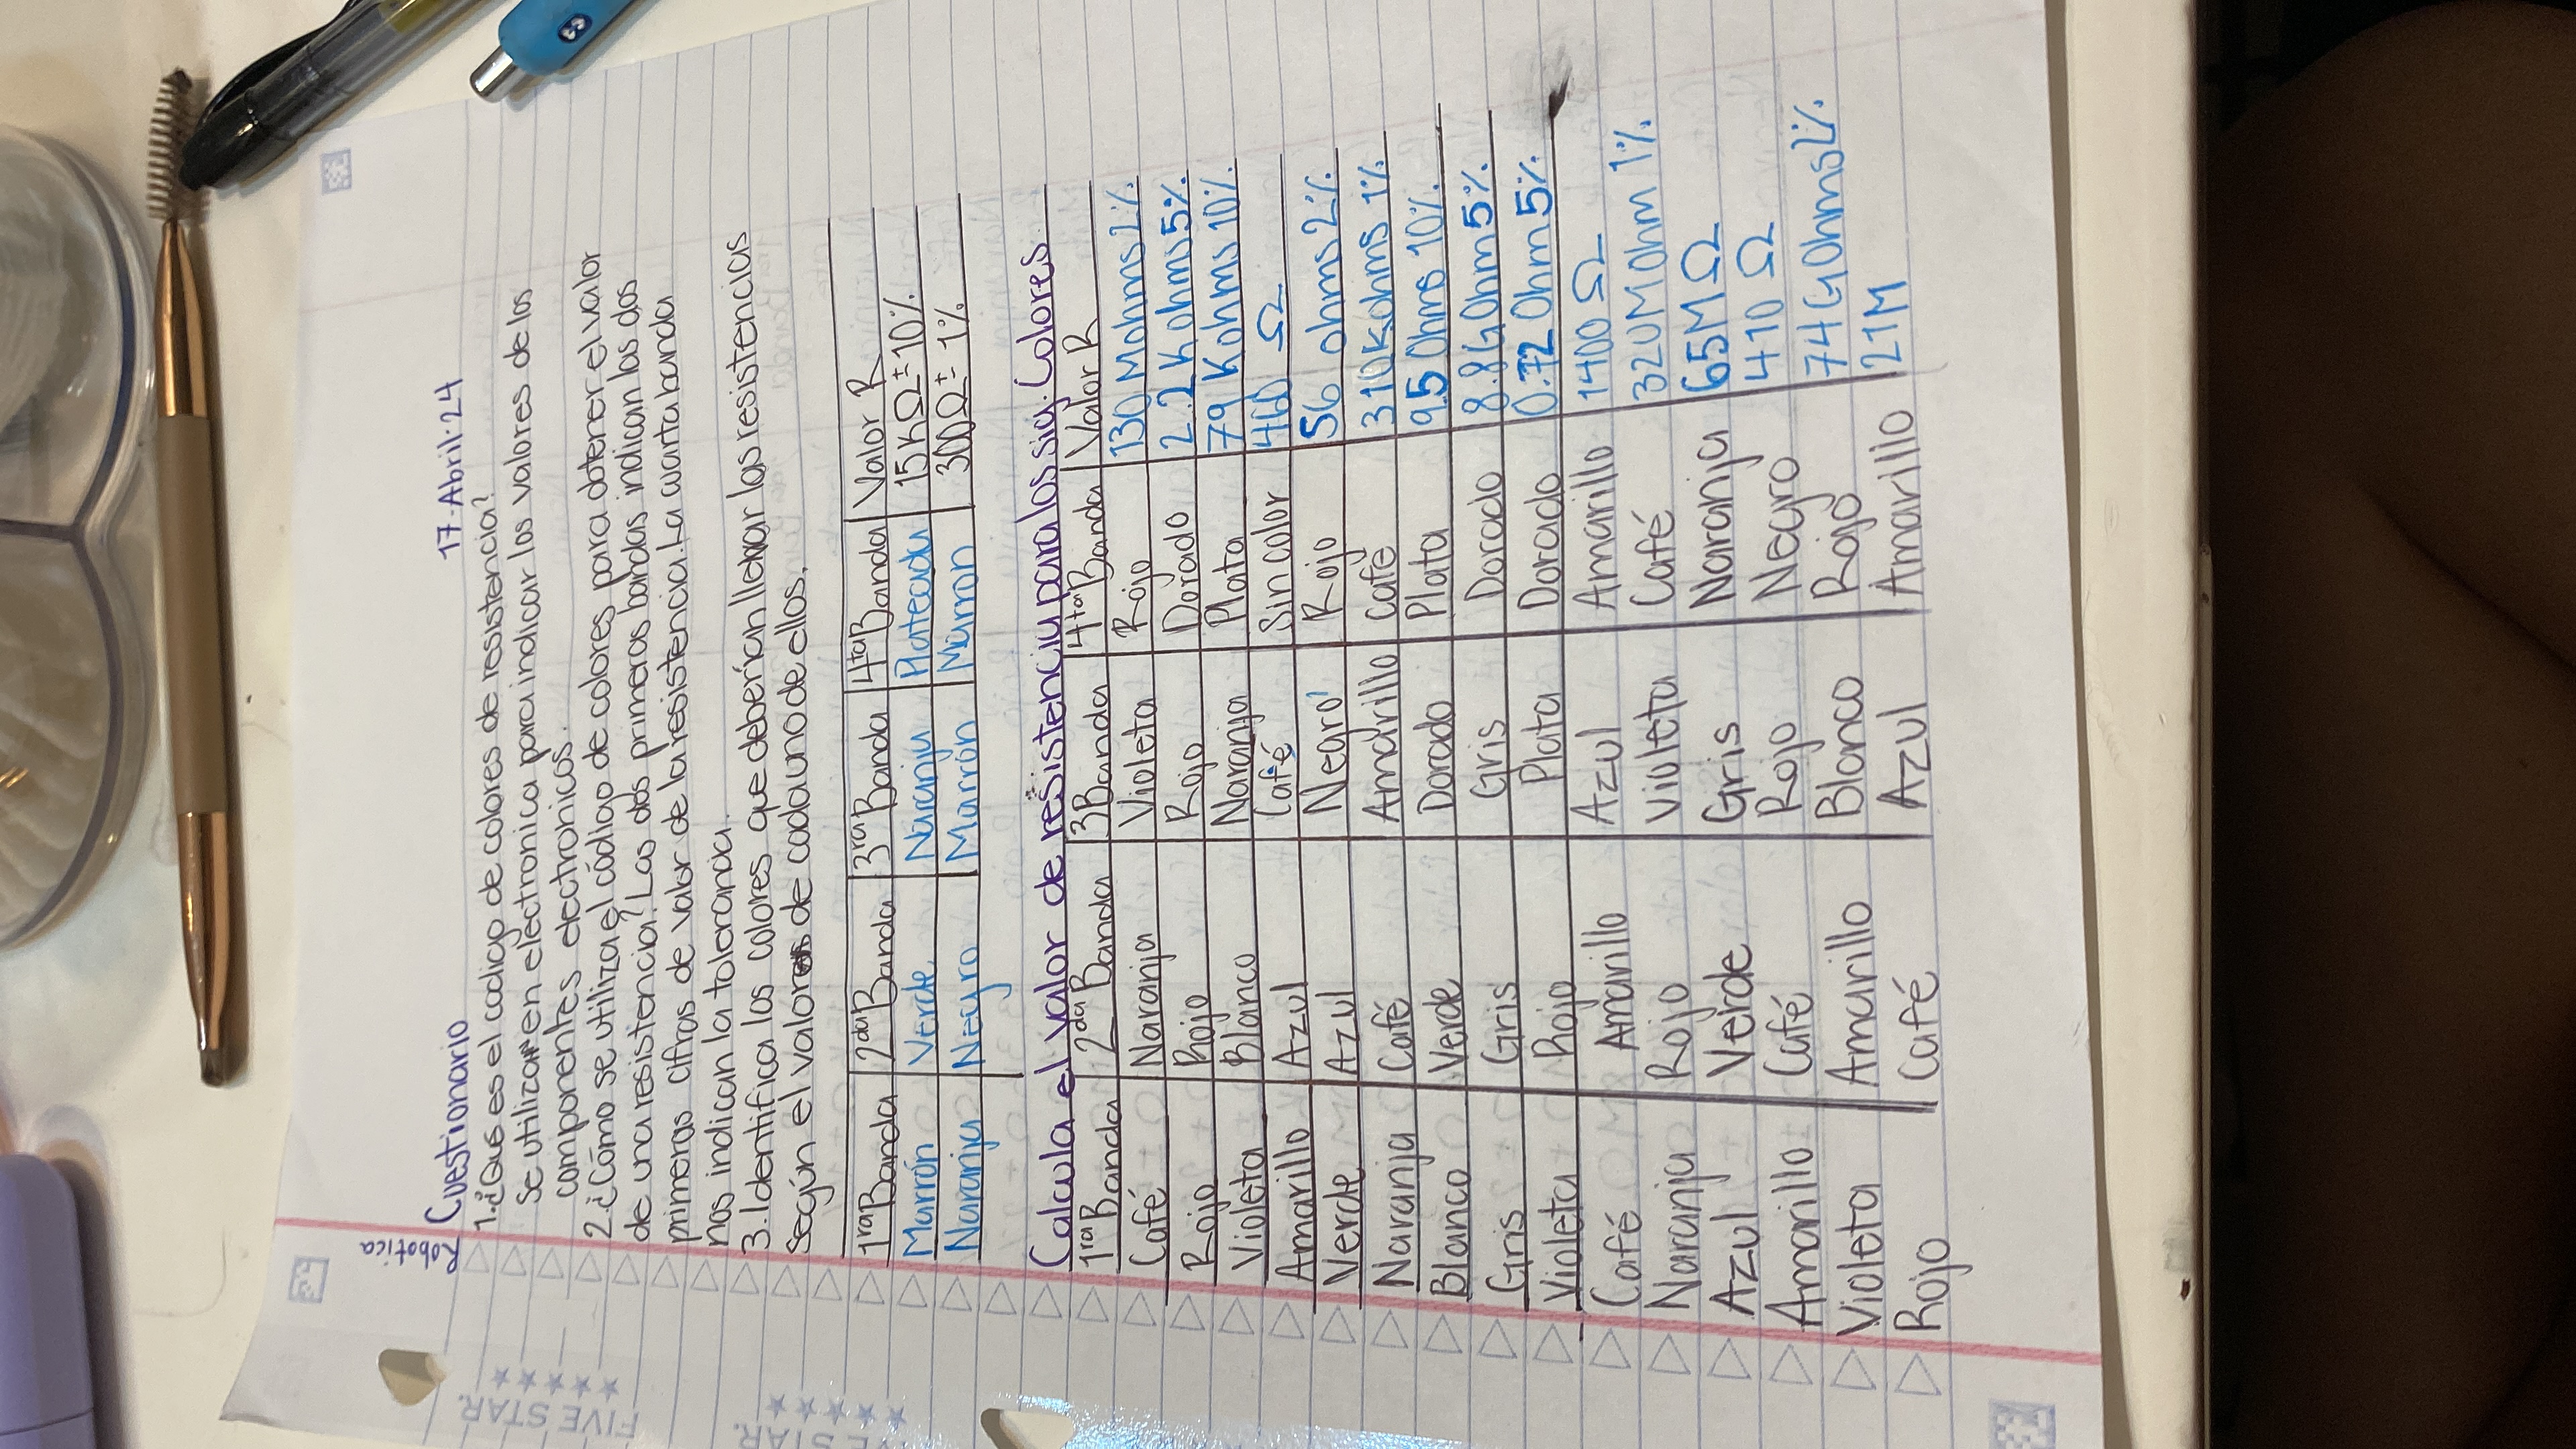 Robotica
Cuestionario 17·Abril·24
1.¿Que es el codigo de colores de resistencia?
se utilizar en electronica para indicar los valores de los
componentes electronicos.
2.¿Cómo se utiliza el código de colores para obtener el valor
de una resistencia? Las dos primeras bandas indican las dos
primeras cifras de valor de la resistencia. La cuarta banda
nos indican la tolerancia.
3. Identifica los colores que deberían llevar las resistencias
según el valor de cada uno de ellos.
1ra Banda 2da Banda 3ra Banda 4ta Banda Valor R
Marrón Verde Naranja Plateada 15 kΩ ± 10%
Naranja Negro Marrón Marron 300Ω ± 1%
Calcula el valor de resistencia para los sig. Colores
1ra Banda 2da Banda 3Banda 4ta Banda Valor R
Café Naranja Violeta Rojo 130 Mohms 2%
Rojo Rojo Rojo Dorado 2.2 Kohms 5%
Violeta Blanco Naranja Plata 79 Kohms 10%
Amarillo Azul Café Sin color 460 Ω
Verde Azul Negro Rojo 56 ohms 2%
Naranja Café Amarillo Café 310Kohms 1%
Blanco Verde Dorado Plata 9.5 Ohms 10%
Gris Gris Gris Dorado 8.8GOhm 5%
Violeta Rojo Plata Dorado 0.72 Ohm 5%
Café Amarillo Azul Amarillo 1400 Ω
Naranja Rojo Violeta Café 320MOhm 1%
Azul Verde Gris Naranja 65M Ω
Amarillo Café Rojo Negro 410 Ω
Violeta Amarillo Blanco Rojo 74GOhms2%
Rojo Café Azul Amarillo 21M
FIVE STAR.
★★★★★
VE STAR.
★★★★★